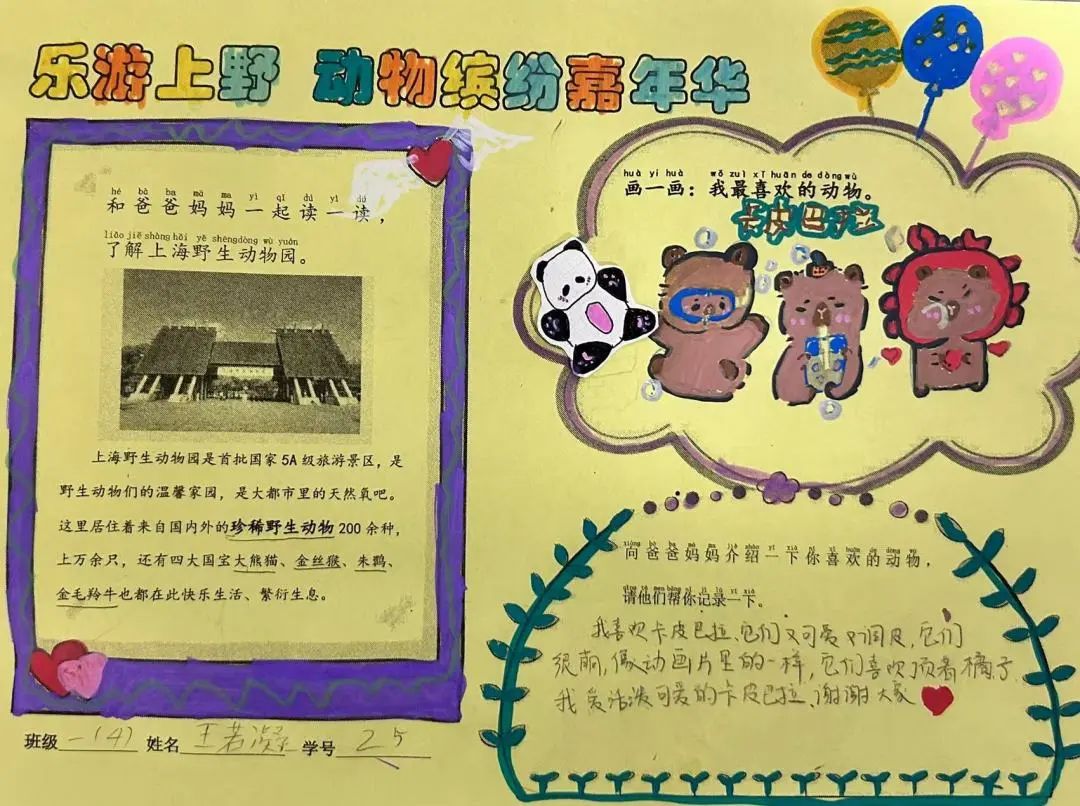 乐游上野 动物缤纷嘉年华
hé bà ba mā ma yì qǐ dú yì dú
和爸爸妈妈一起读一读，
liǎo jiě shàng hǎi yě shēng dòng wù yuán
了解上海野生动物园。
上海野生动物园是首批国家5A级旅游景区，是
野生动物们的温馨家园，是大都市里的天然氧吧。
这里居住着来自国内外的珍稀野生动物200余种，
上万余只，还有四大国宝大熊猫、金丝猴、朱鹮、
金毛羚牛也都在此快乐生活、繁衍生息。
班级一(4) 姓名王若凝 学号25
huà yi huà wǒ zuì xǐ huān de dòng wù
画一画：我最喜欢的动物。
卡皮巴拉
向爸爸妈妈介绍一下你喜欢的动物，
请他们帮你记录一下。
我喜欢卡皮巴拉、它们又可爱又调皮，它们
很萌，像动画片里的一样，它们喜欢顶着橘子.
我爱活泼可爱的卡皮巴拉、谢谢大家